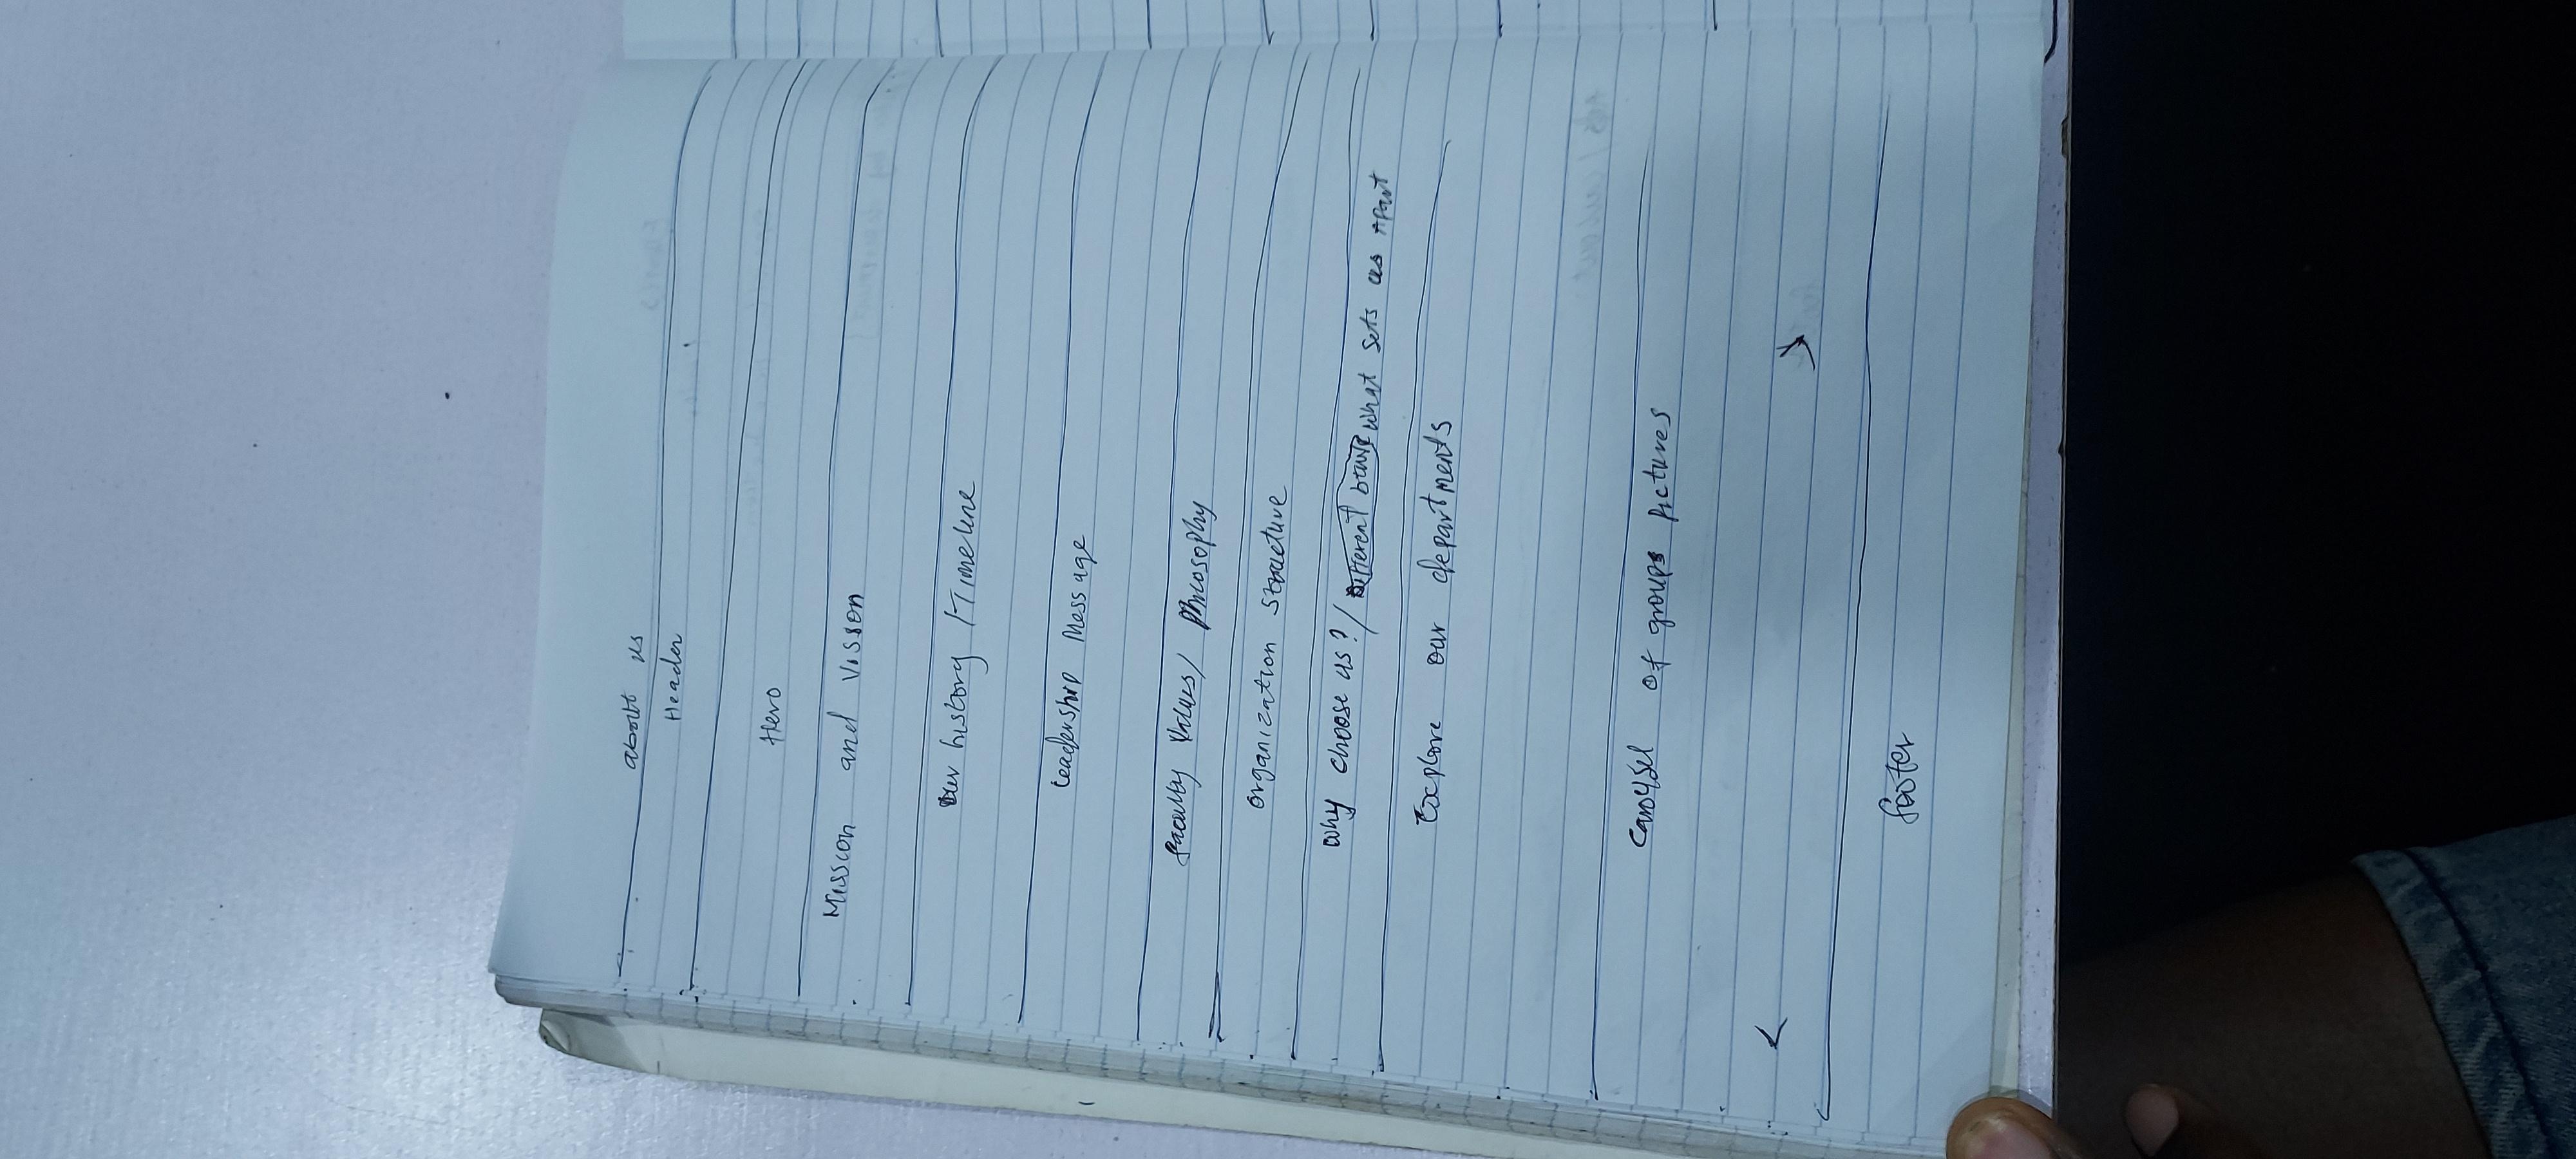 about us
Header
Hero
Mission and Vision
Our history / Timeline
Leadership Message
faculty Values / Philosophy
Organization Structure
Why choose us? / what sets us Apart
Explore our departments
Carousel of groups pictures
< >
footer